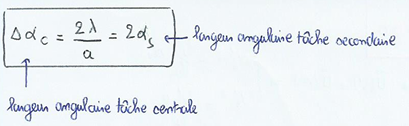 Δα_c = 2λ/a = 2α_s ← largeur angulaire tâche secondaire
largeur angulaire tâche centrale